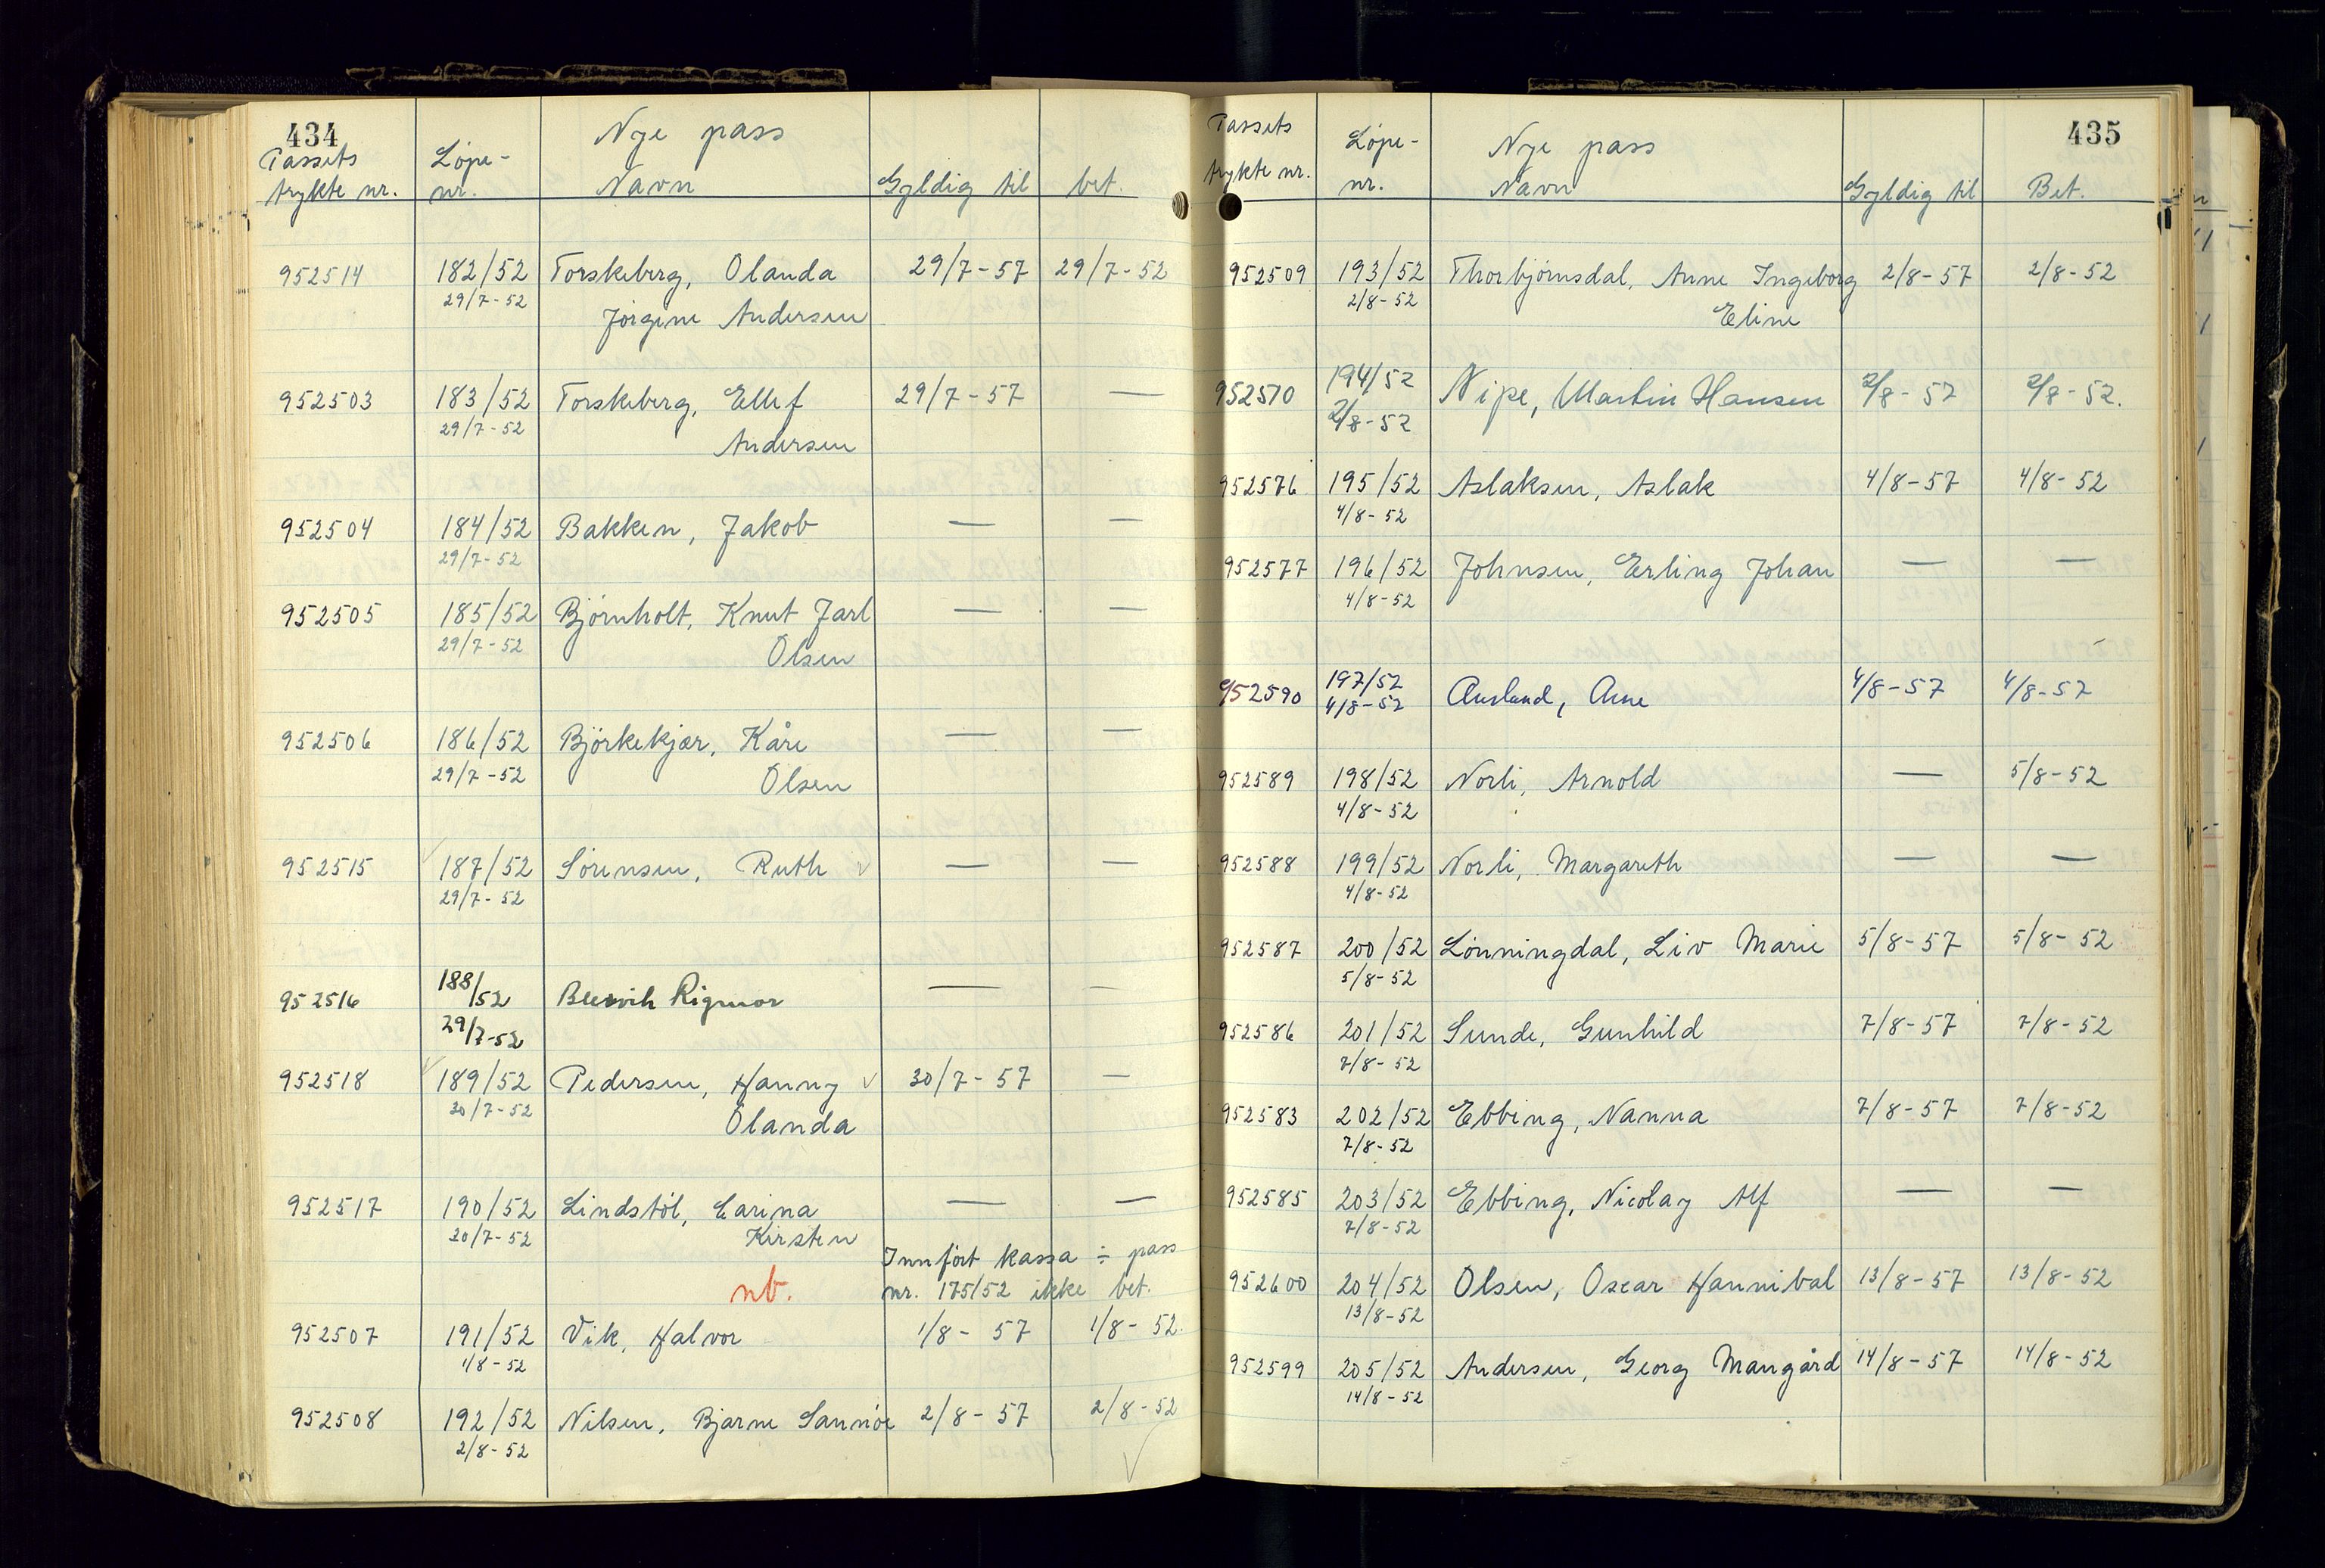 434
Passets Løpe- Nye pass
trykte nr. nr. Navn Gyldig til bet.
952514 182/52 Torskeberg, Olanda 29/7-57 29/7-52
29/7-52 Jørgine Andersen
952503 183/52 Torskeberg, Ellef 29/7-57 —
29/7-52 Andersen
952504 184/52 Bakken, Jakob — —
29/7-52
952505 185/52 Bjørnholt, Knut Jarl — —
29/7-52 Olsen
952506 186/52 Bjørkekjær, Kåre — —
29/7-52 Olsen
952515 187/52 Sørensen, Ruth — —
29/7-52
952516 188/52 Rigmor — —
29/7-52
952518 189/52 Pedersen, Hanny 30/7-57 —
30/7-52 Olanda
952517 190/52 Lindstøl, Carina — —
30/7-52 Kirsten
Innført kassa ÷ pass
nb. nr. 175/52 ikke bet.
952507 191/52 Vik, Halvor 1/8-57 1/8-52
1/8-52
952508 192/52 Nilsen, Bjarne Sannøe 2/8-57 2/8-52
2/8-52
435
Passets Løpe- Nye pass
trykte nr. nr. Navn Gyldig til Bet.
952509 193/52 Thorbjørnsdal, Anne Ingeborg 2/8-57 2/8-52
2/8-52 Eline
952510 194/52 Nipe, Martin Hansen 2/8-57 2/8-52.
2/8-52
952576 195/52 Aslaksen, Aslak 4/8-57 4/8-52
4/8-52
952577 196/52 Johnsen, Erling Johan — —
4/8-52
952590 197/52 Ausland, Arne 4/8-57 4/8-52
4/8-52
952589 198/52 Norli, Arnold — 5/8-52
4/8-52
952588 199/52 Norli, Margareth — —
4/8-52
952587 200/52 Lønningdal, Liv Marie 5/8-57 5/8-52
5/8-52
952586 201/52 Sunde, Gunhild 7/8-57 7/8-52
7/8-52
952583 202/52 Ebbing, Nanna 7/8-57 7/8-52
7/8-52
952585 203/52 Ebbing, Nicolay Alf — —
7/8-52
952600 204/52 Olsen, Oscar Hannibal 13/8-57 13/8-52
13/8-52
952599 205/52 Andersen, Georg Mangård 14/8-57 14/8-52
14/8-52